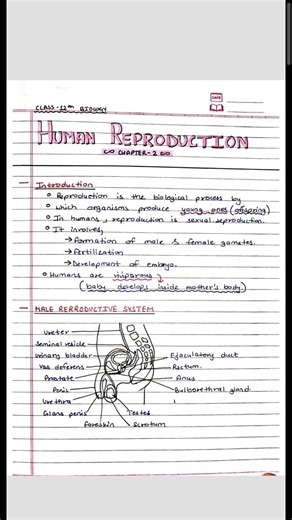 DATE
CLASS-12th BIOLOGY
HUMAN REPRODUCTION
CHAPTER-2
Introduction
Reproduction is the biological process by
which organisms produce young ones (offspring)
In humans, reproduction is sexual reproduction.
It involves,
→ Formation of male & female gametes.
→ Fertilization
→ Development of embryo.
Humans are viviparous
(baby develops inside mother's body)
MALE RERRODUCTIVE SYSTEM
Ureter
Seminal vesicle
Urinary bladder
Ejaculatory duct
Vas deferens
Rectum
Prostate
Anus
Penis
Bulborethral gland
Urethra
Glans penis
Testes
Foreskin
Scrotum